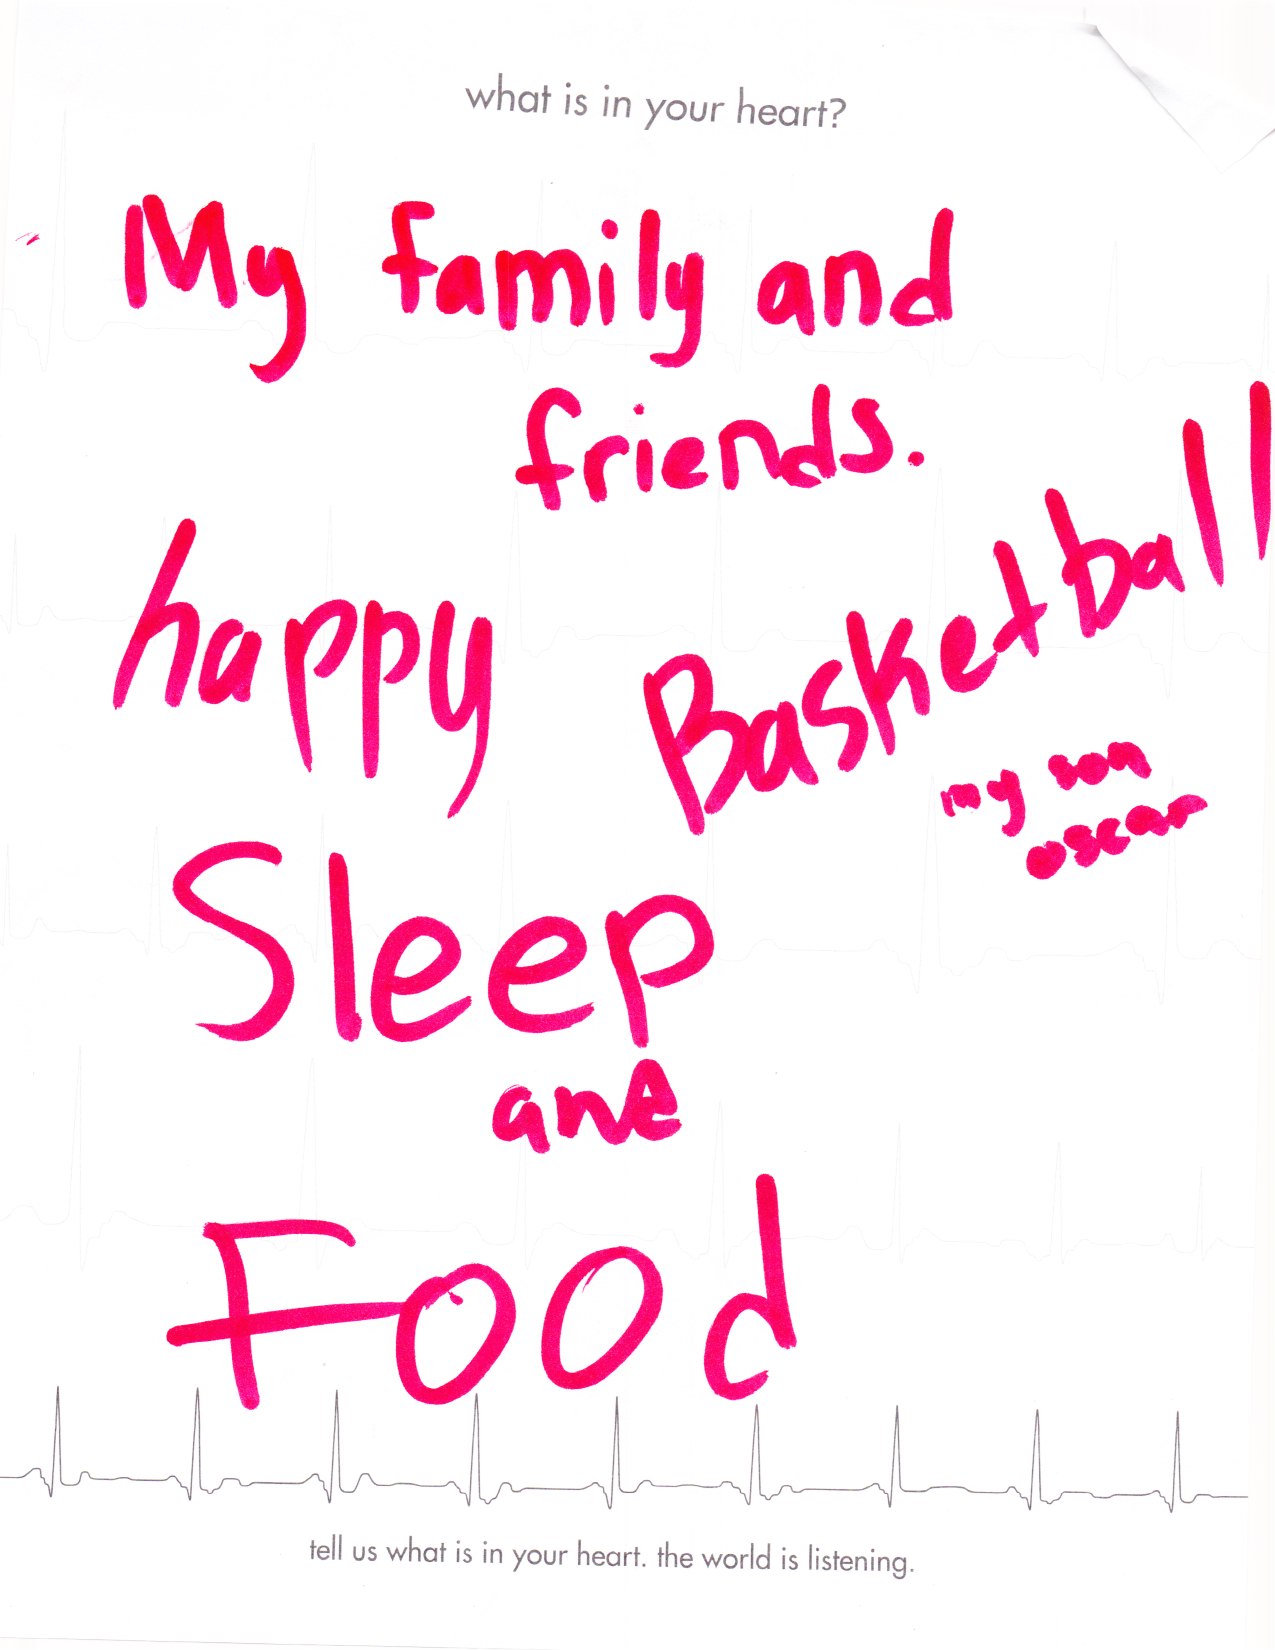 what is in your heart?
My family and
friends.
happy
Basketball
my son
oscar
Sleep
and
Food
tell us what is in your heart. the world is listening.